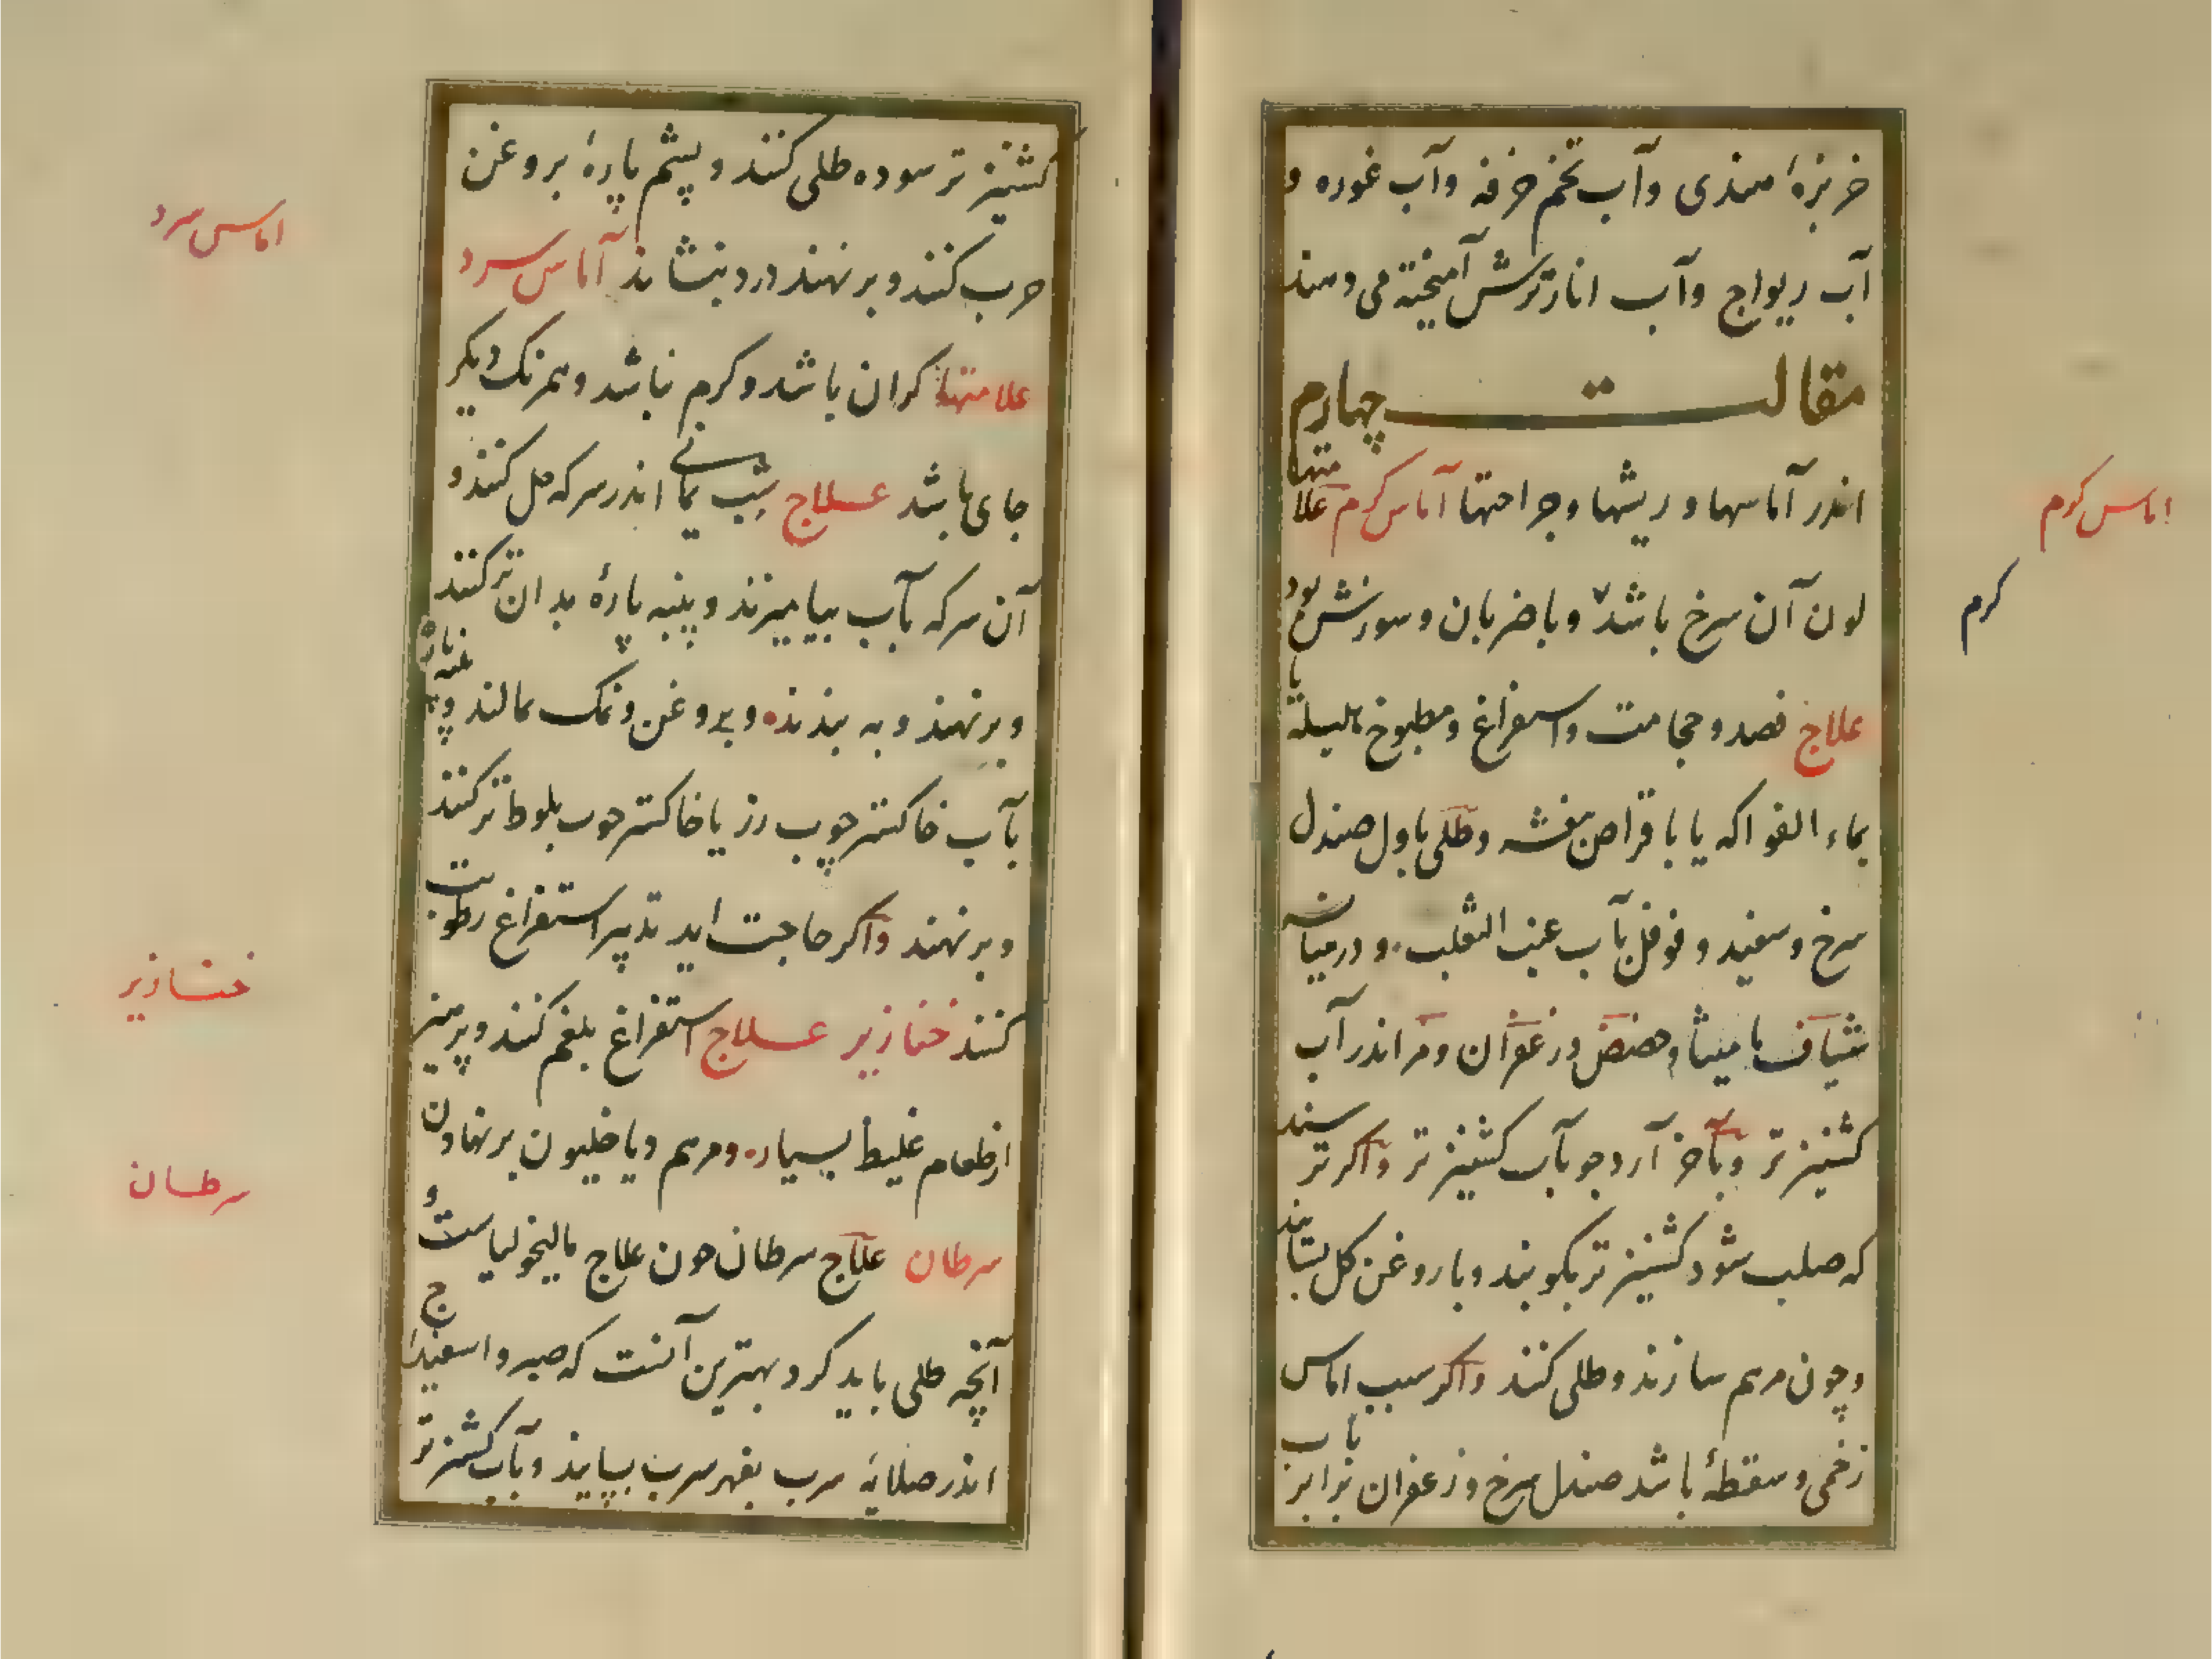 خربزهٔ هندی وآب تخم خرفه وآب غوره و
آب ریواج وآب انار ترش آمیخته می دهند
مقالت چهارم
اندر آماسها و ریشها وجراحتها آماس کرم علامتها
لون آن سرخ باشد وبا ضربان وسوزش بود
علاج فصد وحجامت واستفراغ ومطبوخ هلیله یا
بماء الفواکه یا باقراص بنفشه وطلی باول صندل
سرخ وسفید و فوفل بآب عنب الثعلب و درمیانه
شیاف مامیثا وحضض وزعفران ومر اندر آب
کشنیز تر وبآخر آرد جو بآب کشنیز تر واکر ترسند
که صلب شود کشنیز تر بکوبند وبا روغن کل بتابند
وچون مرهم سازند وطلی کنند واکر سبب اماس
زخمی وسقطهٔ باشد صندل سرخ وزعفران برابر بآب
اماس کرم
کرم
کشنیز تر سوده طلی کنند و پشم پارهٔ بروغن
حرب کنند وبر نهند درد بنشاند آماس سرد
علامتها کران باشد وکرم نباشد وهمرنک دیکر
جای باشد علاج شب یمانی اندر سرکه حل کنند و
آن سرکه بآب بیامیزند وپنبه پارهٔ بدان تر کنند
وبرنهند و به بندند وبروغن ونمک بمالند وپنبه پاره
بآب خاکستر چوب رز یا خاکستر چوب بلوط تر کنند
وبرنهند واکر حاجت اید تدبیر استفراغ رطوبت
کنند خنازیر علاج استفراغ بلغم کنند وپرهیز
از طعام غلیظ بسیار ومرهم دیاخلیون برنهادن
سرطان علاج سرطان چون علاج مالیخولیاست و
آنچه طلی باید کرد بهترین آنست که صبر واسفیداج
اندر صلایهٔ سرب بفهر سرب بسایند وبآب کشنیز تر
اماس سرد
خنازیر
سرطان